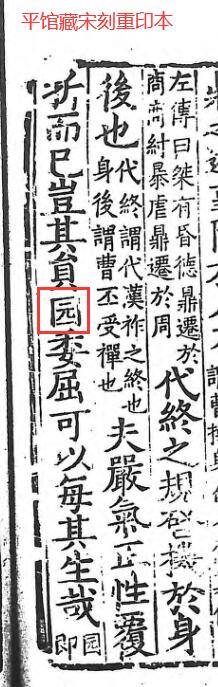 平馆藏宋刻重印本
左傳曰桀有昏德鼎遷於
商商紂暴虐鼎遷於周
代終之規啓機於身
後也
代終謂代漢祚之終也
身後謂曹丕受禪也
夫嚴氣正性覆
折而已豈其員园委屈可以每其生哉
园
即